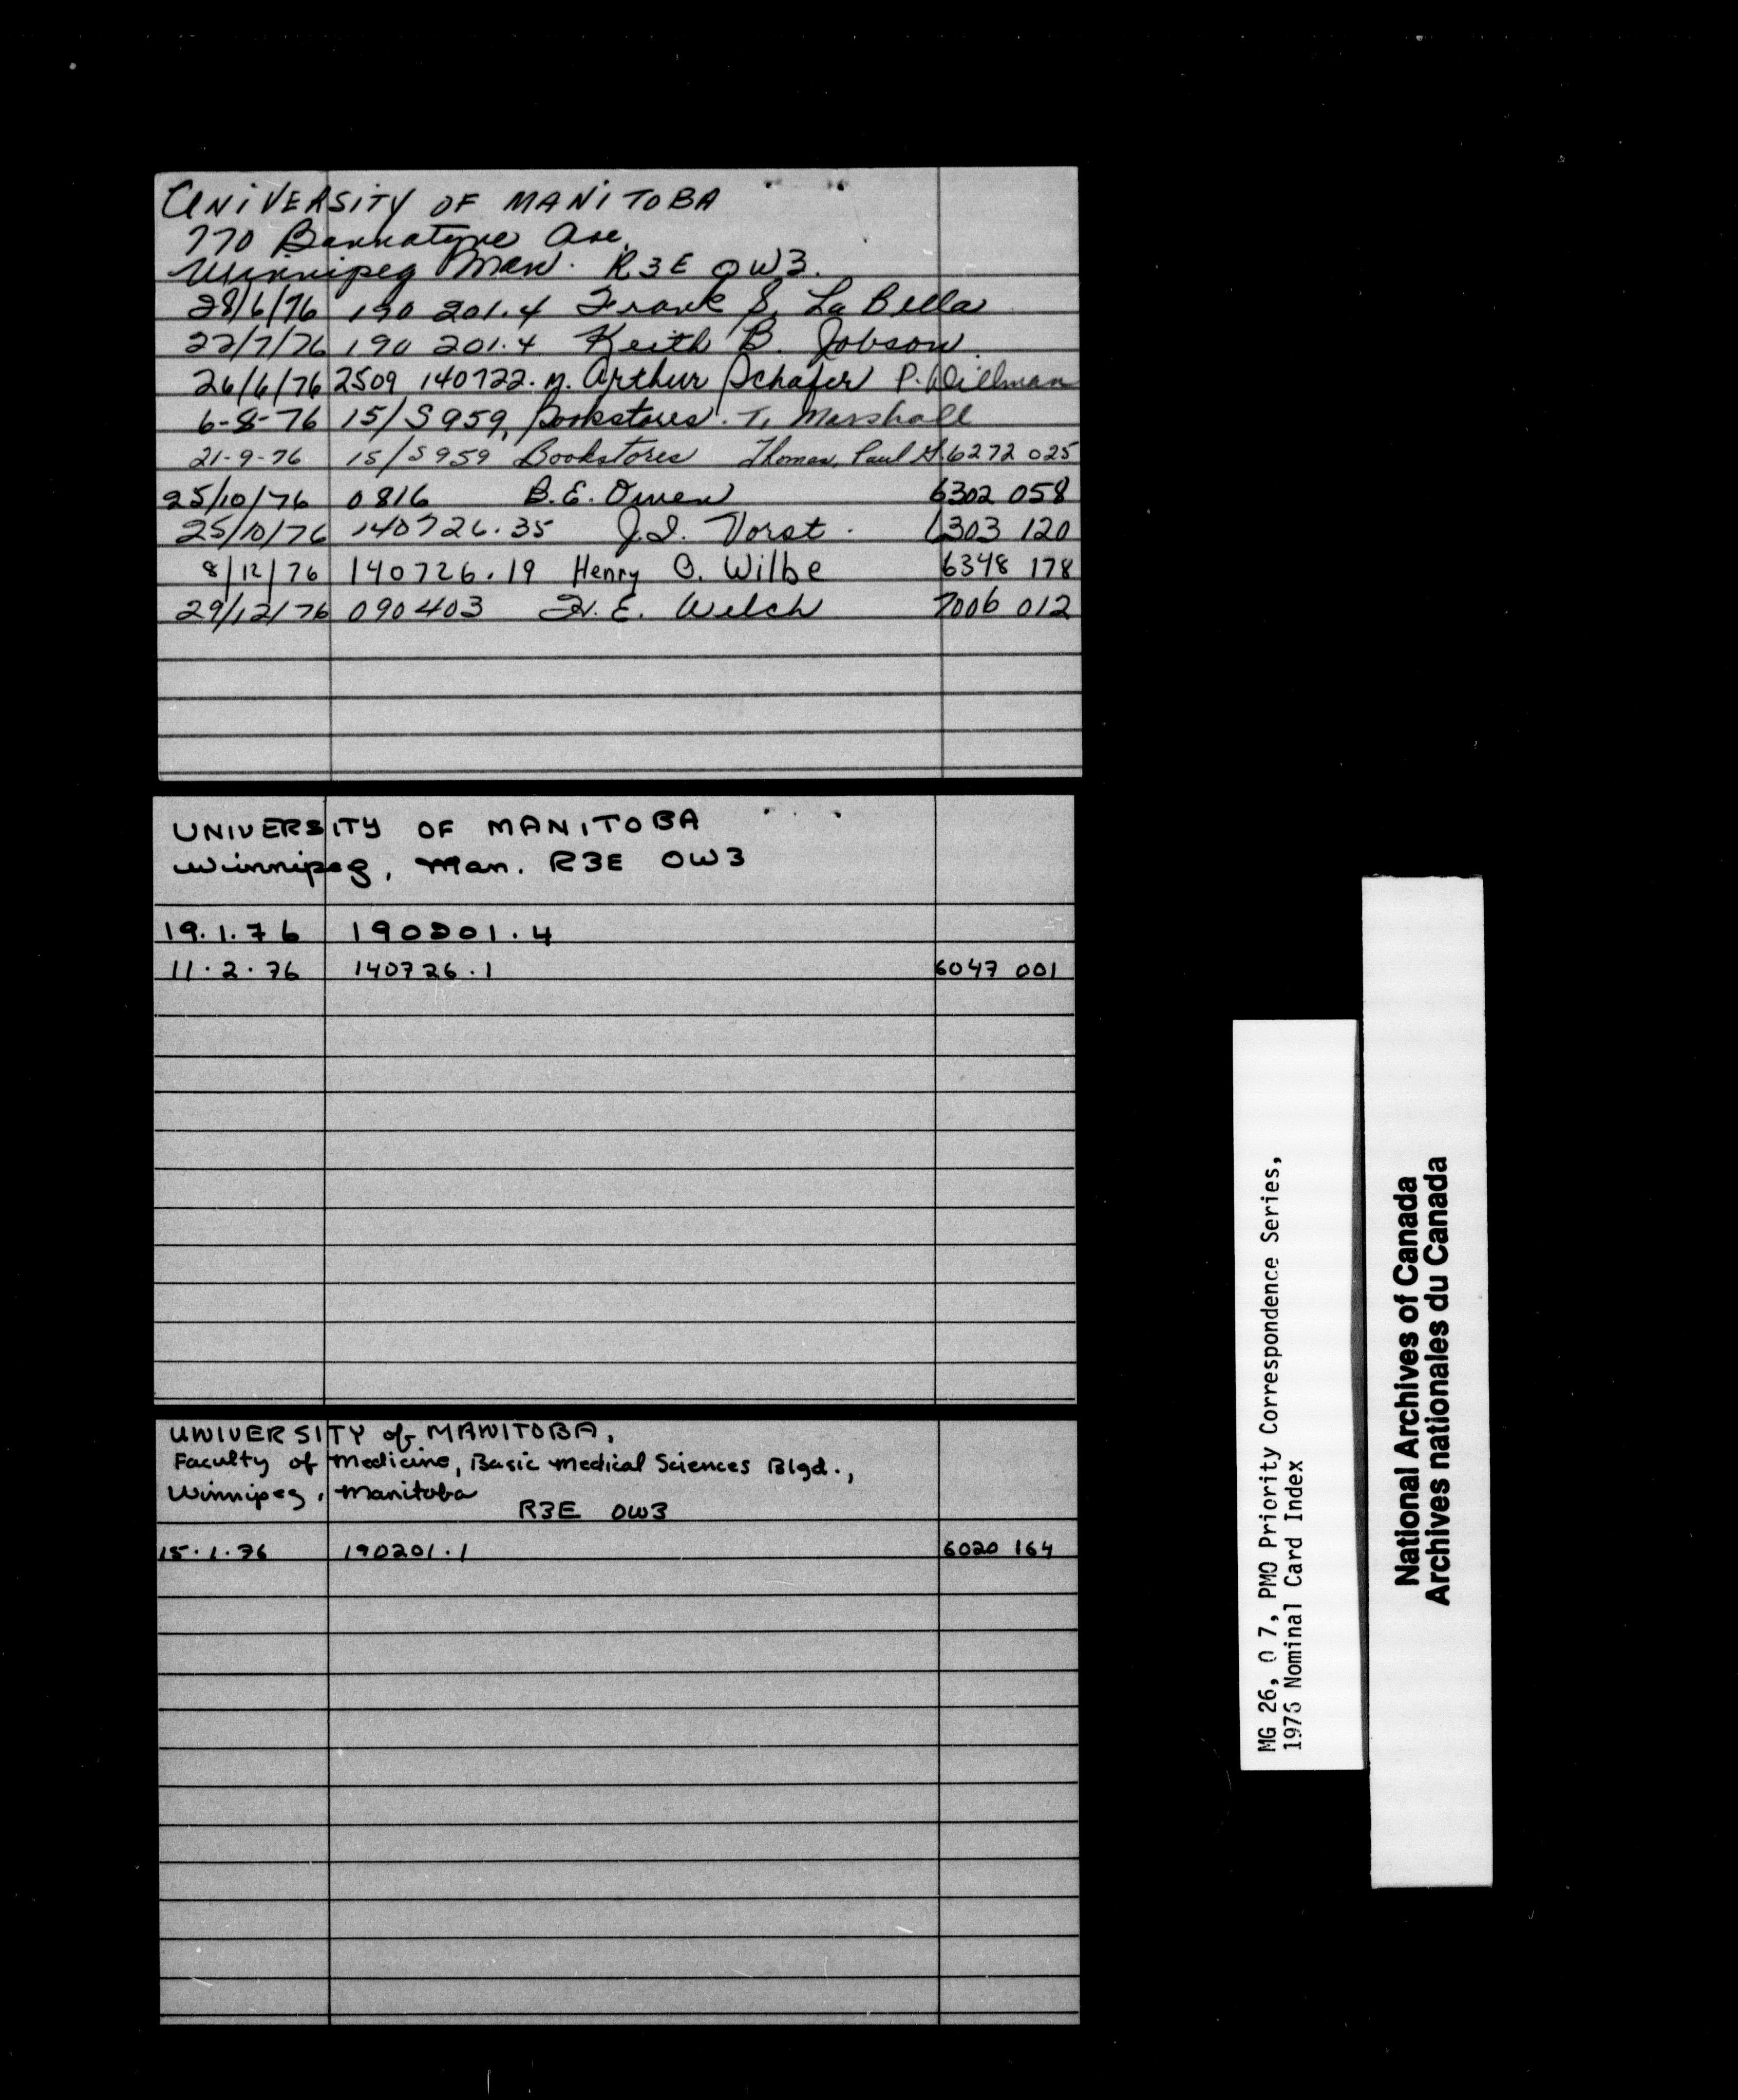 UNIVERSITY OF MANITOBA
770 Bannatyne Ave.
Winnipeg Man. R3E 0W3.
28/6/76 190 201.4 Frank S. La Bella
22/7/76 190 201.4 Keith B. Jobson
26/6/76 2509 140722. M. Arthur Schafer P.
6-8-76 15/S959, Bookstores. T. Marshall
21-9-76 15/S959 Bookstores Thomas, Paul G. 6272 025
25/10/76 0816 B.E. Owen 6302 058
25/10/76 140726.35 J.I. Vorst. 6303 120
8/12/76 140726.19 Henry O. Wilbe 6348 178
29/12/76 090403 H. E. Welch 7006 012
UNIVERSITY OF MANITOBA
Winnipeg, Man. R3E 0W3
19.1.76 190201.4
11.2.76 140726.1 6047 001
UNIVERSITY of MANITOBA,
Faculty of Medicine, Basic Medical Sciences Blgd.,
Winnipeg, Manitoba
R3E 0W3
15.1.76 190201.1 6020 164
MG 26, O 7, PMO Priority Correspondence Series,
1976 Nominal Card Index
National Archives of Canada
Archives nationales du Canada